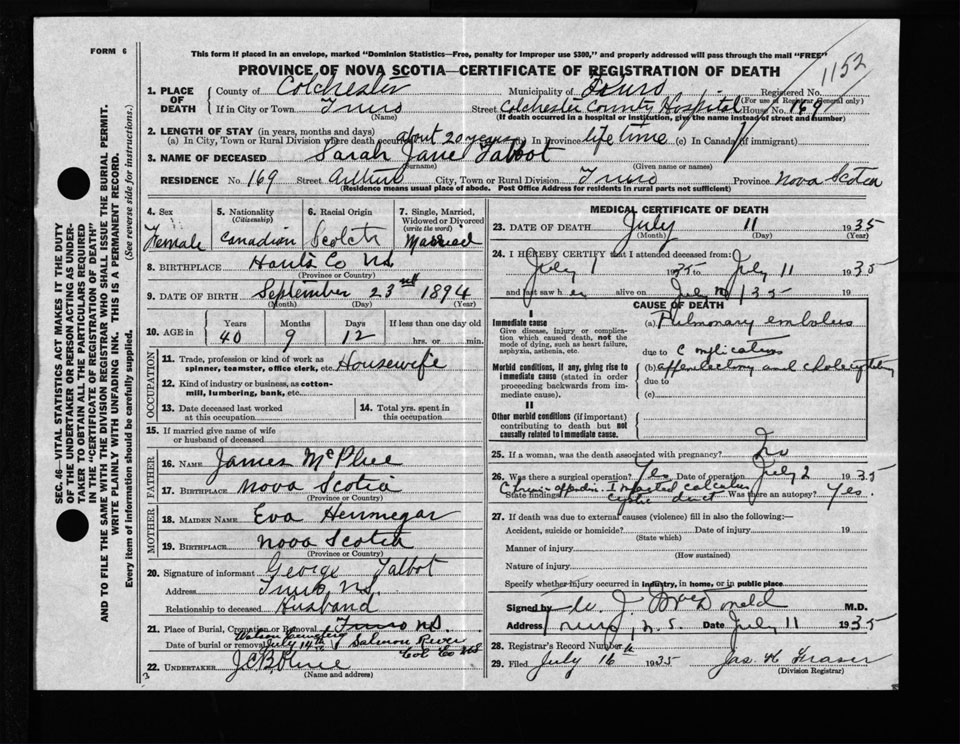 FORM 6
This form if placed in an envelope, marked "Dominion Statistics—Free, penalty for improper use $300," and properly addressed will pass through the mail "FREE"
1152
PROVINCE OF NOVA SCOTIA—CERTIFICATE OF REGISTRATION OF DEATH
1. PLACE OF DEATH
County of Colchester Municipality of Truro Registered No.
(For use of Registrar General only)
If in City or Town Truro Street Colchester County Hospital House No. 169
(Name) (If death occurred in a hospital or institution, give the name instead of street and number)
2. LENGTH OF STAY (in years, months and days)
(a) In City, Town or Rural Division where death occurred about 20 years (b) In Province life time (c) In Canada (if immigrant)
3. NAME OF DECEASED Sarah Jane Talbot
(Surname) (Given name or names)
RESIDENCE No. 169 Street Arthur City, Town or Rural Division Truro Province Nova Scotia
(Residence means usual place of abode. Post Office Address for residents in rural parts not sufficient)
SEC. 46—VITAL STATISTICS ACT MAKES IT THE DUTY
OF THE UNDERTAKER OR PERSON ACTING AS UNDER-
TAKER TO OBTAIN ALL THE PARTICULARS REQUIRED
IN THE "CERTIFICATE OF REGISTRATION OF DEATH"
AND TO FILE THE SAME WITH THE DIVISION REGISTRAR WHO SHALL ISSUE THE BURIAL PERMIT.
WRITE PLAINLY WITH UNFADING INK. THIS IS A PERMANENT RECORD.
Every item of information should be carefully supplied. (See reverse side for instructions.)
4. Sex
Female
5. Nationality
(Citizenship)
Canadian
6. Racial Origin
Scotch
7. Single, Married, Widowed or Divorced
(write the word)
Married
8. BIRTHPLACE Hants Co NS
(Province or Country)
9. DATE OF BIRTH September 23rd 1894
(Month) (Day) (Year)
10. AGE in
Years Months Days If less than one day old
40 9 12 hrs. or min.
OCCUPATION
11. Trade, profession or kind of work as
spinner, teamster, office clerk, etc. Housewife
12. Kind of industry or business, as cotton-
mill, lumbering, bank, etc.
13. Date deceased last worked
at this occupation
14. Total yrs. spent in
this occupation
15. If married give name of wife
or husband of deceased
FATHER
16. NAME James McPhee
17. BIRTHPLACE Nova Scotia
(Province or Country)
MOTHER
18. MAIDEN NAME Eva Hennegar
19. BIRTHPLACE Nova Scotia
(Province or Country)
20. Signature of informant George Talbot
Address Truro N.S.
Relationship to deceased Husband
21. Place of Burial, Cremation or Removal Truro N.S.
Watson Cemetery
Date of burial or removal July 14th Salmon River
Col Co NS
22. UNDERTAKER
(Name and address)
MEDICAL CERTIFICATE OF DEATH
23. DATE OF DEATH July 11 1935
(Month) (Day) (Year)
24. I HEREBY CERTIFY that I attended deceased from:
July 1 1935 to July 11 1935
and last saw her alive on July 35 19
CAUSE OF DEATH
I
Immediate cause
Give disease, injury or complication which caused death, not the mode of dying, such as heart failure, asphyxia, asthenia, etc.
(a) Pulmonary embolus
due to Complicating
Morbid conditions, if any, giving rise to immediate cause (stated in order proceeding backwards from immediate cause).
(b) appendectomy and
due to
(c)
II
Other morbid conditions (if important) contributing to death but not causally related to immediate cause.
25. If a woman, was the death associated with pregnancy? No
26. Was there a surgical operation? Yes Date of operation July 2 1935
Chronic appendix. Impacted calculus
State findings cystic duct Was there an autopsy? Yes.
27. If death was due to external causes (violence) fill in also the following:—
Accident, suicide or homicide? Date of injury 19
(State which)
Manner of injury
(How sustained)
Nature of injury
Specify whether injury occurred in industry, in home, or in public place
Signed by W. J. McDonald M.D.
Address Truro, N.S. Date July 11 1935
28. Registrar's Record Number
29. Filed July 16 1935 Jas. H Fraser
(Division Registrar)